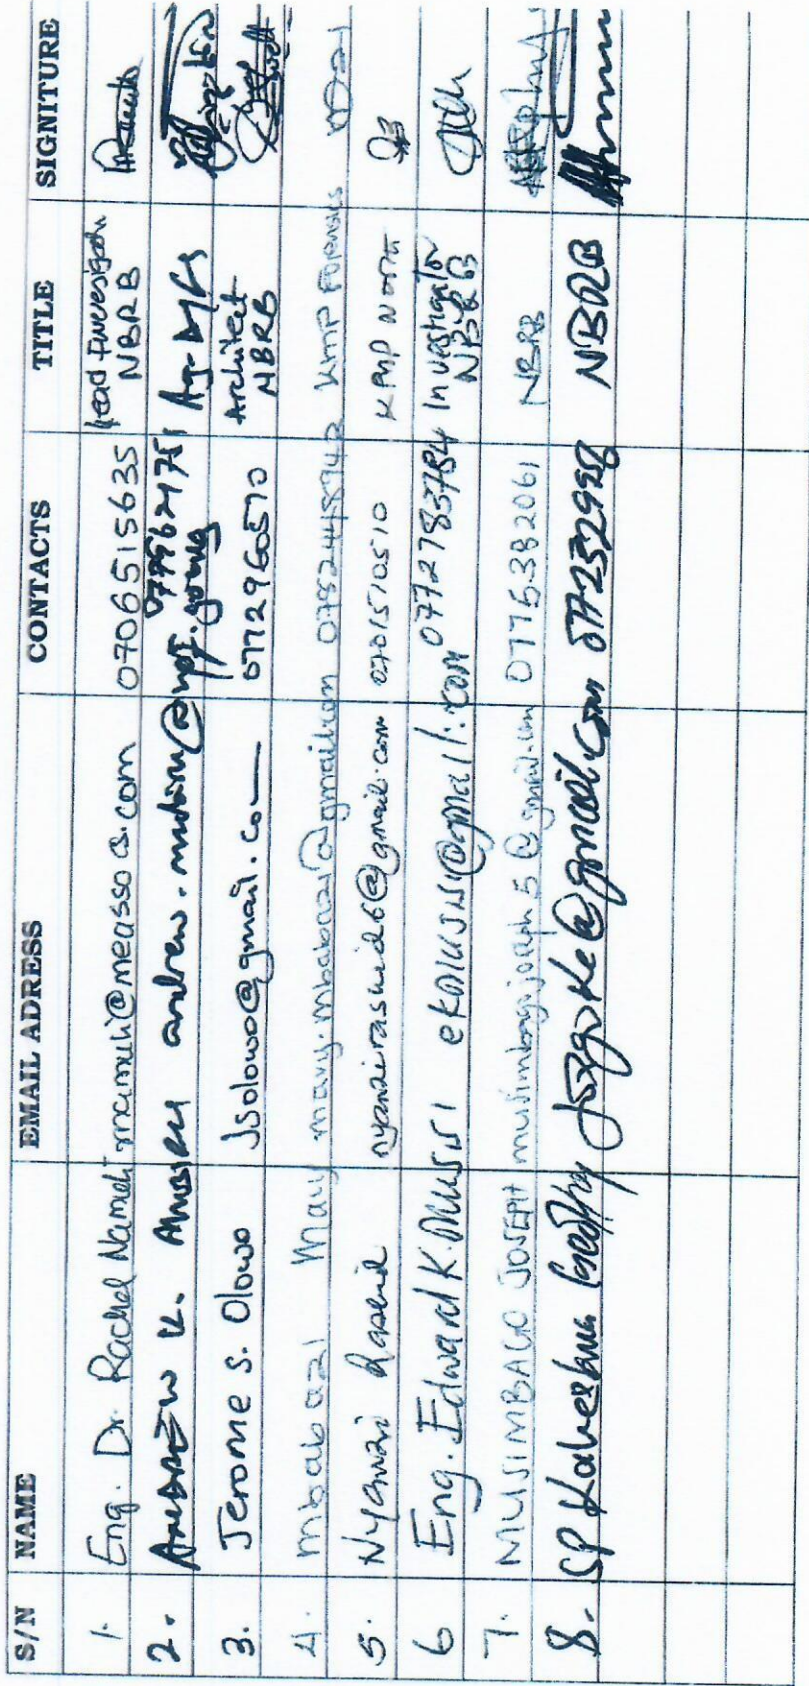 S/N NAME EMAIL ADRESS CONTACTS TITLE SIGNITURE
1. Eng. Dr. Rachel Namuli mcmuli@measso cs.com 0706515635 Lead Investigator NBRB
2. ANDREW K. andrew. @upf.go.ug Ag.
3. Jerome S. Olowo Jsolowo@gmail.co 0772960570 Architect NBRB
4. mbabazi Mary mary.mbabazi@gmail.com KMP Forensics
5. Nyanzi Rashid nyanzirashid26@gmail.com 0701510510 KMP North
6 Eng. Edward K. Musisi ekmusisi@gmail.com 0772783784 Investigator NBRB
7. MUSIMBAGO JOSEPH musimbagojoseph5@gmail.com 0776382061 NBRB
8. SP @gmail.com NBRB